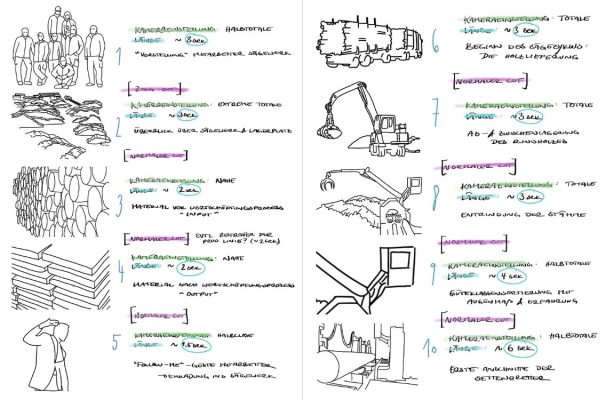 1
KAMERAEINSTELLUNG: HALBTOTALE
LÄNGE: ~ 3 SEK.
"VORSTELLUNG" MITARBEITER SÄGEWERK
[ZOOM OUT]
2
KAMERAEINSTELLUNG: EXTREME TOTALE
LÄNGE: ~ 3 SEK
ÜBERBLICK ÜBER SÄGEWERK & LAGERPLATZ
[NORMALER CUT]
3
KAMERAEINSTELLUNG: NAHE
LÄNGE: ~ 2 SEK
MATERIAL VOR WERTSCHÖPFUNGSPROZESS
"INPUT"
[NORMALER CUT] EVTL. ZEITRAFFER DER
PROD. LINIE? (~2 SEK)
4
KAMERAEINSTELLUNG: NAHE
LÄNGE: ~ 2 SEK.
MATERIAL NACH WERTSCHÖPFUNGSPROZESS
"OUTPUT"
[NORMALER CUT]
5
KAMERAEINSTELLUNG:
LÄNGE: ~ 1,5 SEK.
"FOLLOW-ME"-GESTE MITARBEITER
EINLADUNG INS SÄGEWERK
6
KAMERAEINSTELLUNG: TOTALE
LÄNGE ~ 3 SEK
BEGINN DES SÄGEZYKLUS:
DIE HOLZLIEFERUNG
[NORMALER CUT]
7
KAMERAEINSTELLUNG: TOTALE
LÄNGE: ~ 3 SEK
AB- & ZWISCHENLAGERUNG
DES RUNDHOLZES
[NORMALER CUT]
8
KAMERAEINSTELLUNG: TOTALE
LÄNGE ~ 3 SEK
ENTRINDUNG DER STÄMME
[NORMALER CUT]
9
KAMERAEINSTELLUNG: HALBTOTALE
LÄNGE: ~ 4 SEK
GÜTEKLASSENSORTIERUNG MIT
AUGENMASS & ERFAHRUNG
[NORMALER CUT]
10
KAMERAEINSTELLUNG: HALBTOTALE
LÄNGE: ~ 6 SEK
ERSTE ANSCHNITTE DER
SEITENBRETTER